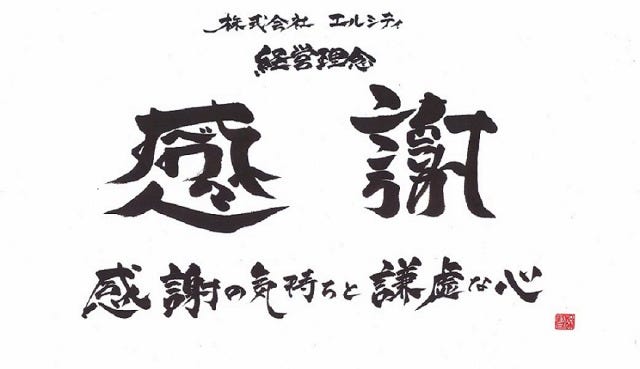 株式会社 エルシティ
経営理念
感謝
感謝の気持ちと謙虚な心